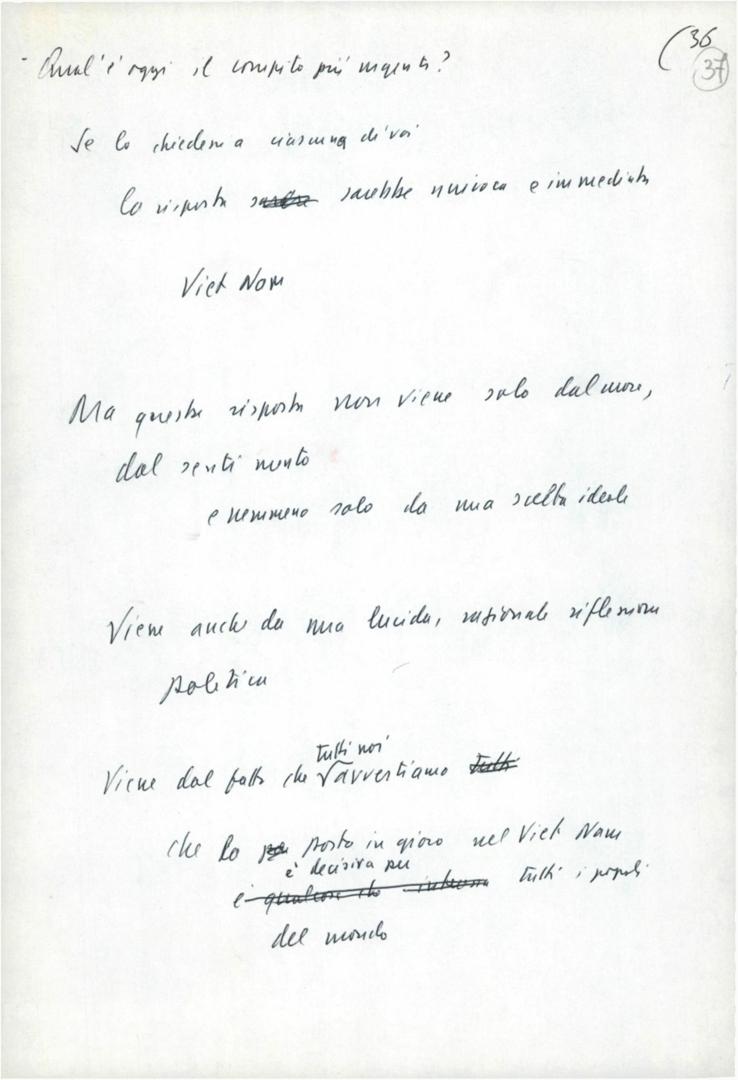 (36
37
- Qual'è oggi il compito più urgente?
Se lo chiedessi a ciascuno di voi
la risposta sarebbe univoca e immediata
Viet Nam
Ma questa risposta non viene solo dal cuore,
dal sentimento
e nemmeno solo da una scelta ideale
Viene anche da una lucida, razionale riflessione
politica
tutti noi
Viene dal fatto che avvertiamo tutti
che la posta in gioco nel Viet Nam
è decisiva per
è qualcosa che interessa tutti i popoli
del mondo